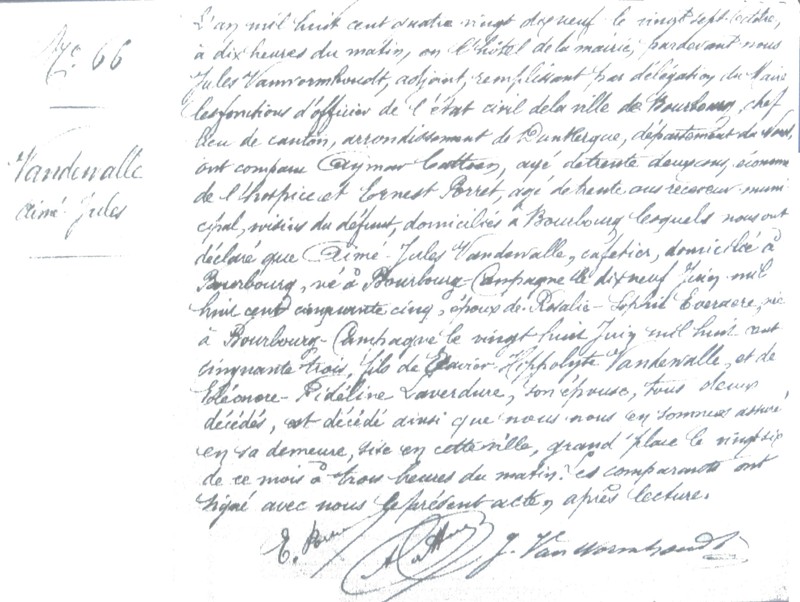 No. 66
Vandewalle
Aimé-Jules
L'an mil huit cent quatre vingt dix neuf le vingt sept
à dix heures du matin, en l'hôtel de la mairie, pardevant nous
Jules Vanwormhoudt, adjoint, remplissant par délégation du Maire
les fonctions d'officier de l'état civil de la ville de Bourbourg, chef
lieu de canton, arrondissement de Dunkerque, département du Nord,
ont comparu Aymar agé de trente deux ans, économe
de l'hospice et Ernest Porret, agé de trente ans receveur muni
cipal, voisins du défunt, domiciliés à Bourbourg lesquels nous ont
déclaré que Aimé-Jules Vandewalle, cafetier, domicilié à
Bourbourg, né à Bourbourg-Campagne le dix neuf Juin mil
huit cent cinquante cinq, époux de Rosalie-Sophie Everaere, née
à Bourbourg-Campagne le vingt huit Juin mil huit cent
cinquante trois, fils de Hippolyte Vandewalle, et de
Eléonore-Fidéline Laverdure, son épouse, tous deux
décédés, est décédé ainsi que nous nous en sommes assuré
en sa demeure, sise en cette ville, grand'place le vingt six
de ce mois à trois heures du matin. Les comparants ont
signé avec nous le présent acte, après lecture.
E. Porret J. Vanwormhoudt